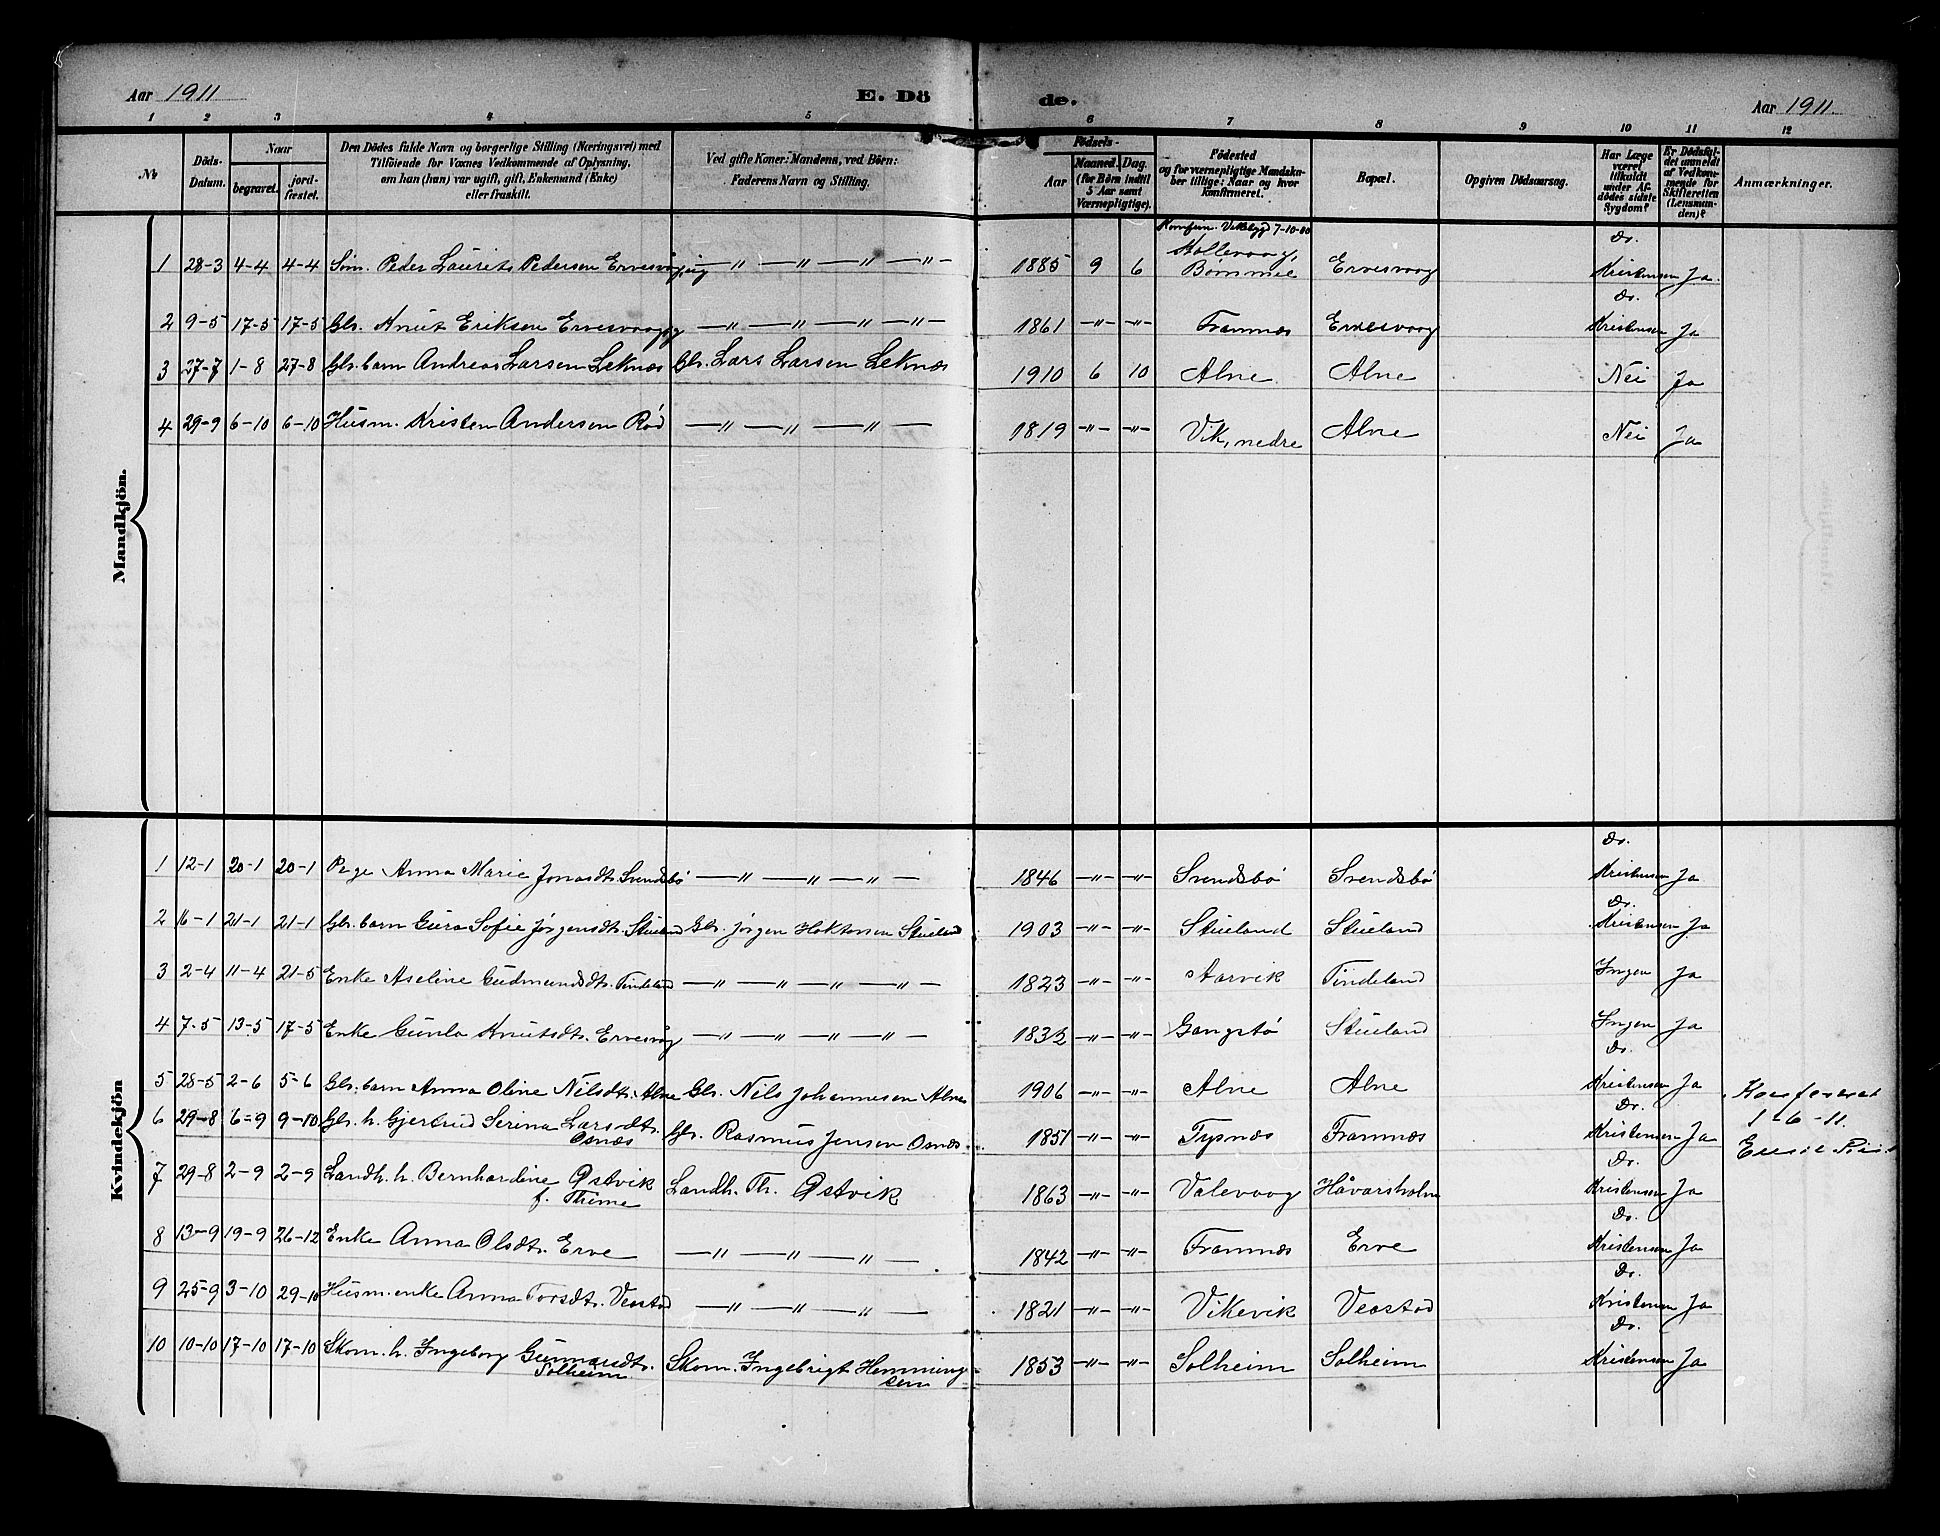 Aar 1911 E. Dö de. Aar 1911.
1 2 3 4 5 6 7 8 9 10 11 12
No
Döds-Datum.
Naar
begravet.
jord-fæstet.
Den Dödes fulde Navn og borgerlige Stilling (Næringsvei) med
Tilföiende for Voxnes Vedkommende af Oplysning,
om han (hun) var ugift, gift, Enkemand (Enke)
eller fraskilt.
Ved gifte Koner: Mandens, ved Börn:
Faderens Navn og Stilling.
Födsels-
Aar
Maaned.
Dag.
(for Børn indtil
5 Aar samt
Værnepligtige).
Födested
og for værnepligtige Mandska-
ber tillige: Naar og hvor
konfirmeret.
Bopæl.
Opgiven Dödsaarsag.
Har Læge
været
tilkaldt
under Af-
dödes sidste
Sygdom?
Er Dödsfal-
det anmeldt
af Vedkom-
mende for
Skifteretten
(Lensman-
den)?
Anmærkninger.
Mandkjön.
Konfirm. Vikebygd 7-10-00
1 28-3 4-4 4-4 Søn. Peder Laurits Pedersen Ervesvåg, ug — " — " — " — " - 1885 9 6 Mollevaag, Bømmel Ervesvaag Dr. Kristensen Ja.
2 9-5 17-5 17-5 Gbr. Knut Eriksen Ervesvaag, — " — " — " — " - 1861 -"- -"- Framnæs Ervesvaag Dr. Kristensen Ja
3 27-7 1-8 27-8 Gbr. barn Andreas Larsen Leknæs Gbr. Lars Larsen Leknæs 1910 6 10 Alne Alne Nei Ja
4 29-9 6-10 6-10 Husm. Kristen Andersen Rød — " — " — " — 1819 -"- -"- Vik, nedre Alne Nei Ja
Kvindekjön
1 12-1 20-1 20-1 Pige Anna Marie Jonasdtr. Svendsbø — " — " — " — 1846 -"- -"- Svendsbø Svendsbø Dr. Kristensen Ja
2 16-1 21-1 21-1 Gbr. barn Guro Sofie Jørgensdtr. Stueland Gbr. Jørgen Haktorsen Stueland 1903 -"- -"- Stueland Stueland Dr. Kristensen Ja
3 2-4 11-4 21-5 Enke Aseline Gudmundsdtr. Tindeland — " — " — " — " — 1823 -"- -"- Aarvik Tindeland Ingen Ja
4 7-5 13-5 17-5 Enke Gunla Knutsdtr. Ervesvåg — " — " — " — " — 1832 -"- -"- Gangstø Stueland Ingen Ja
5 28-5 2-6 5-6 Gbr. barn Anna Oline Nilsdtr. Alne Gbr. Nils Johannesen Alne 1906 -"- -"- Alne Alne Dr. Kristensen Ja
6 29-8 6=9 9-10 Gbr. h. Gjertrud Serina Larsdtr. Osnæs Gbr. Rasmus Jensen Osnæs 1851 -"- -"- Tysnæs Framnæs Dr. Kristensen Ja
Konfereret
1-6-11.
7 29-8 2-9 2-9 Landh. h. Bernhardine Østvik f. Thime Landh. Th. Østvik 1863 -"- -"- Valevaag Håvarsholm Dr. Kristensen Ja
8 13-9 19-9 26-12 Enke Anna Olsdtr. Erve — " — " — " — 1842 -"- -"- Framnæs Erve Dr. Kristensen Ja
9 25-9 3-10 29-10 Husm. enke Anna Torsdtr. Vestad — " — " — " — 1821 -"- -"- Vikevik Vestad Dr. Kristensen Ja
10 10-10 17-10 17-10 Skom. h. Ingeborg Gunnarsdtr. Solheim Skom. Ingebrigt Hemming-sen 1853 -"- -"- Solheim Solheim Dr. Kristensen Ja